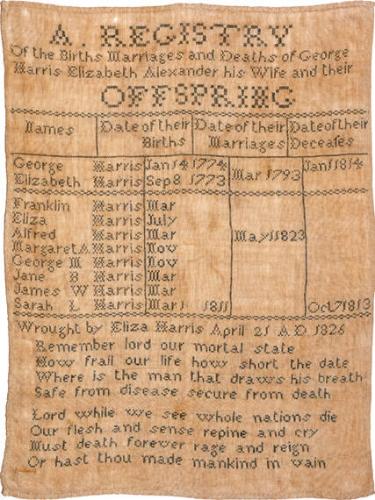 A REGISTRY
Of the Births Marriages and Deaths of George
Harris Elizabeth Alexander his Wife and their
OFFSPRING
Names Date of their Births Date of their Marriages Date of their Deceases
George Harris Jan 14 1774 Mar 1793 Jan 11 1814
Elizabeth Harris Sep 8 1773
Franklin Harris Mar
Eliza Harris July
Alfred Harris Mar May 1 1823
Margaret A Harris Nov
George M Harris Nov
Jane B Harris Mar
James W Harris Mar
Sarah L Harris Mar 1 1811 Oct 7 1813
Wrought by Eliza Harris April 21 A D 1826
Remember lord our mortal state
How frail our life how short the date
Where is the man that draws his breath
Safe from disease secure from death
Lord while we see whole nations die
Our flesh and sense repine and cry
Must death forever rage and reign
Or hast thou made mankind in vain